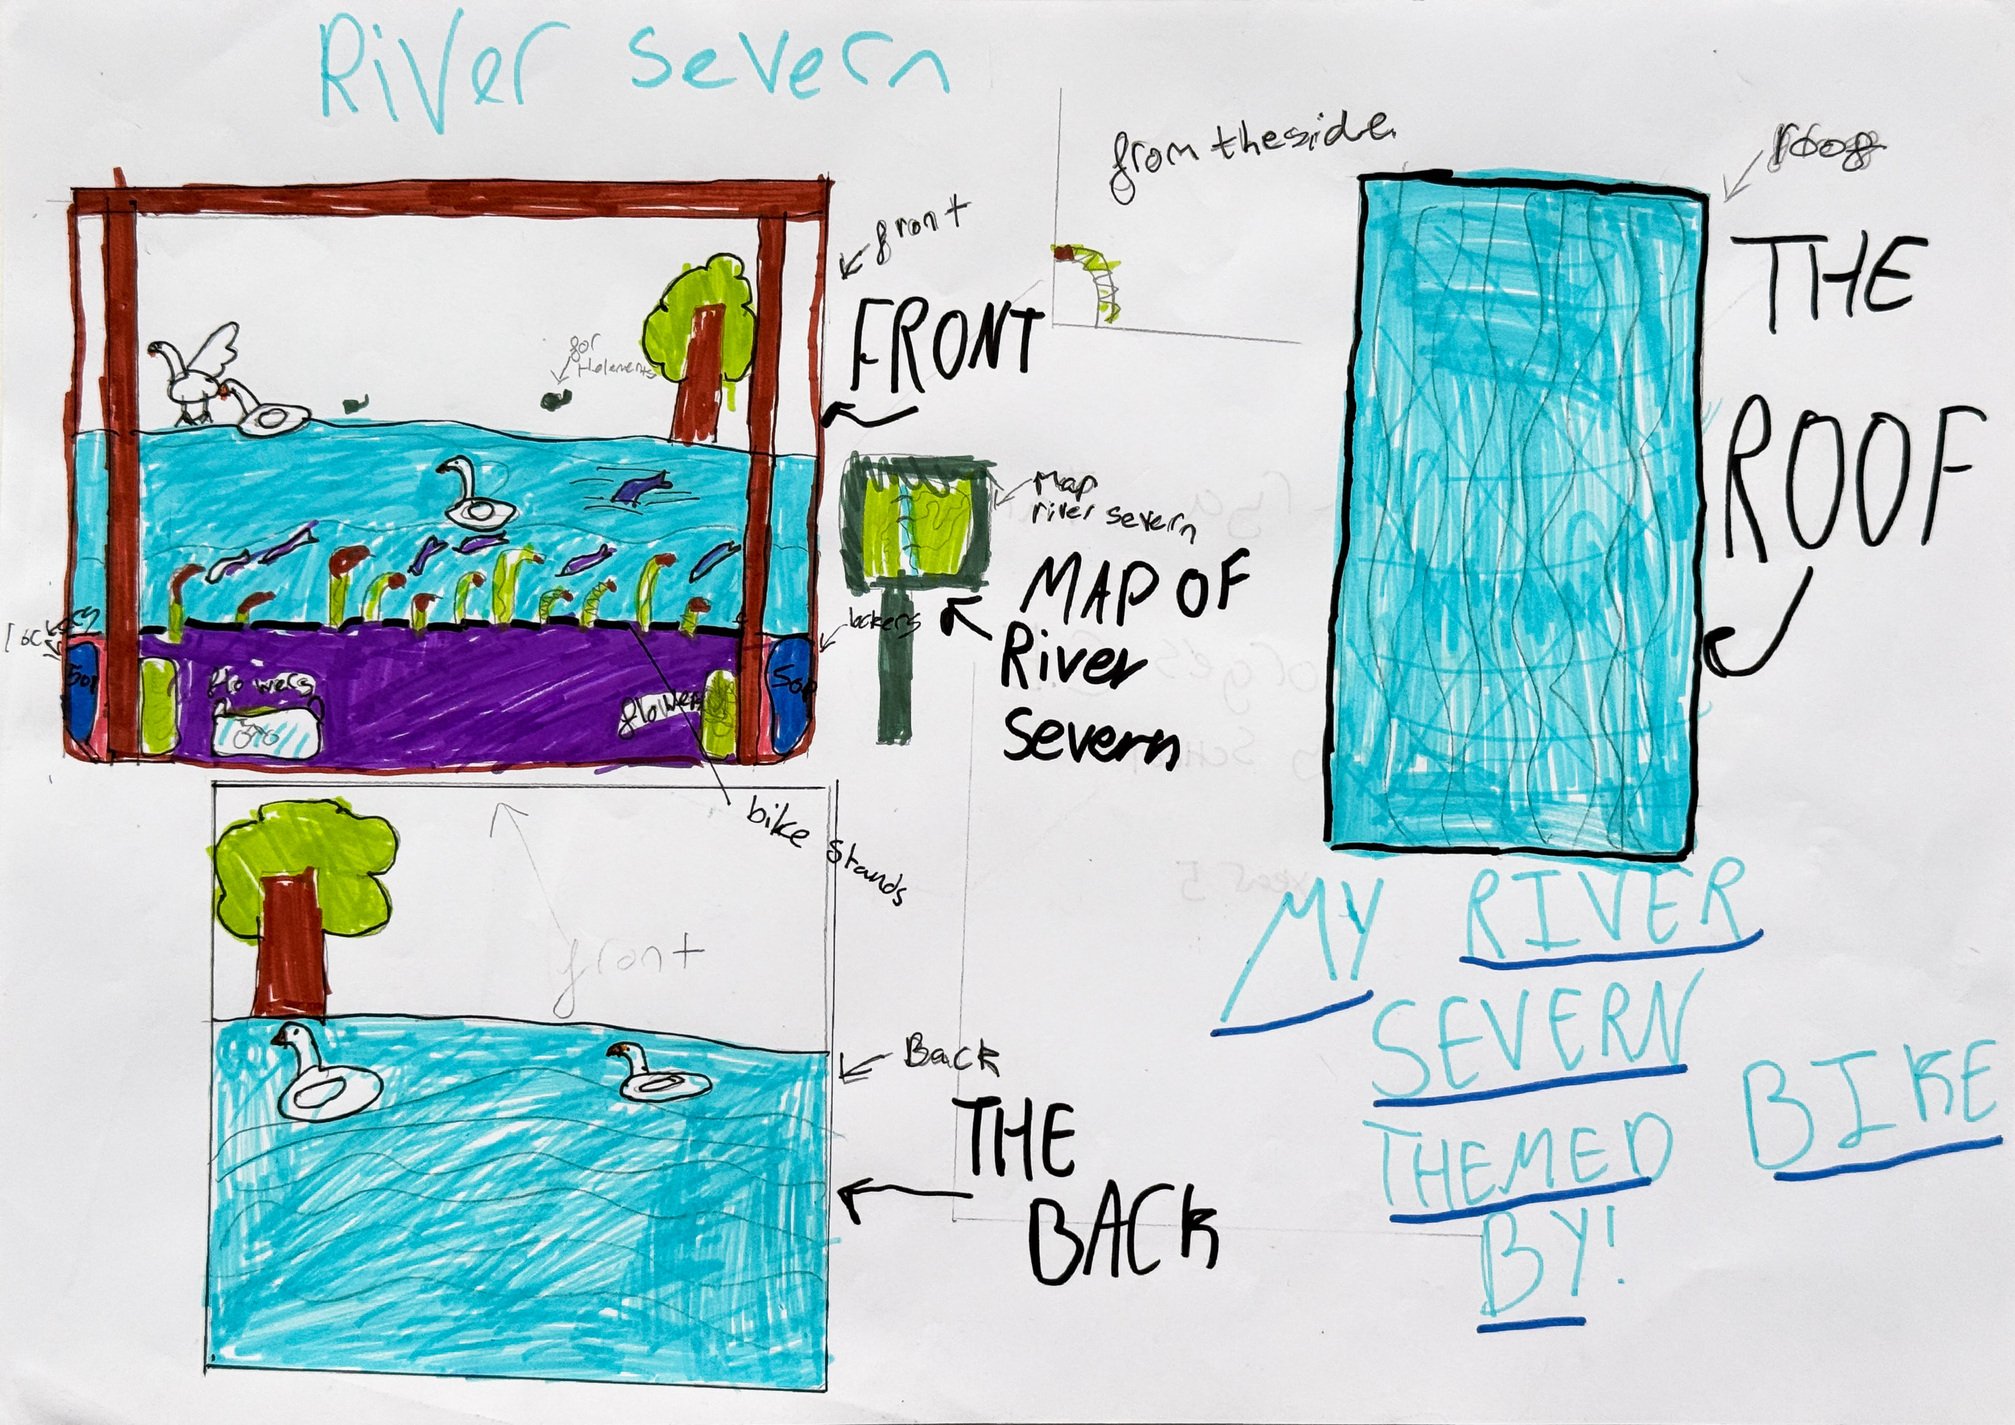 River severn
from the side
roof
THE
ROOF
front
FRONT
for
Helements
Map
river severn
MAP OF
River
Severn
lockers
50p
50p
flowers
flowers
bike stands
front
Back
THE
BACK
MY RIVER
SEVERN
THEMED BIKE
BY!
year 5